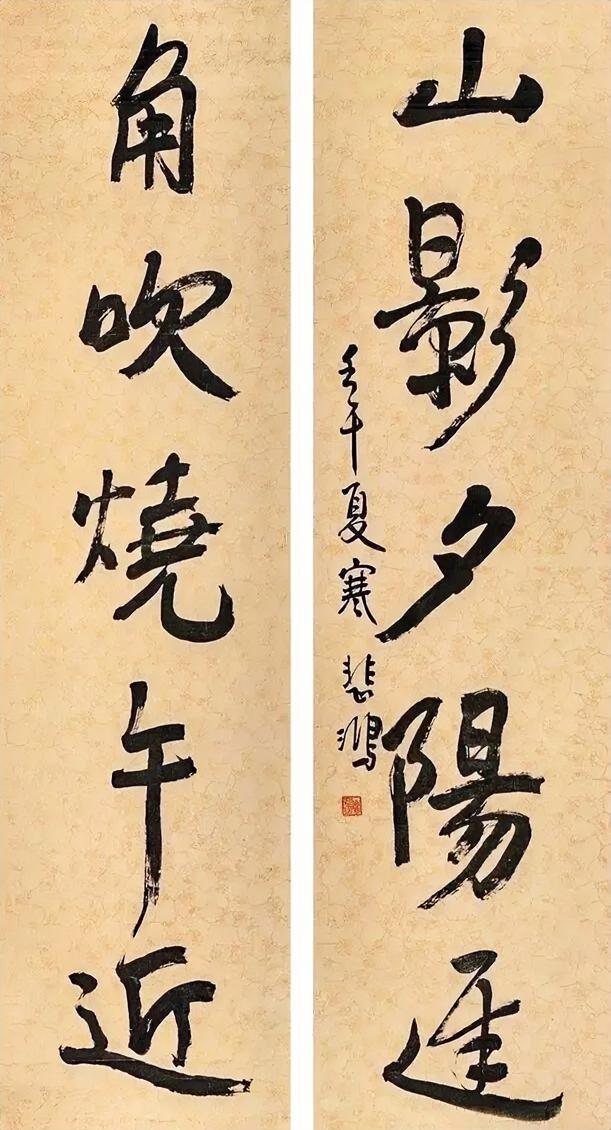 山影夕陽遲
壬午夏寒 悲鴻
角吹燒午近